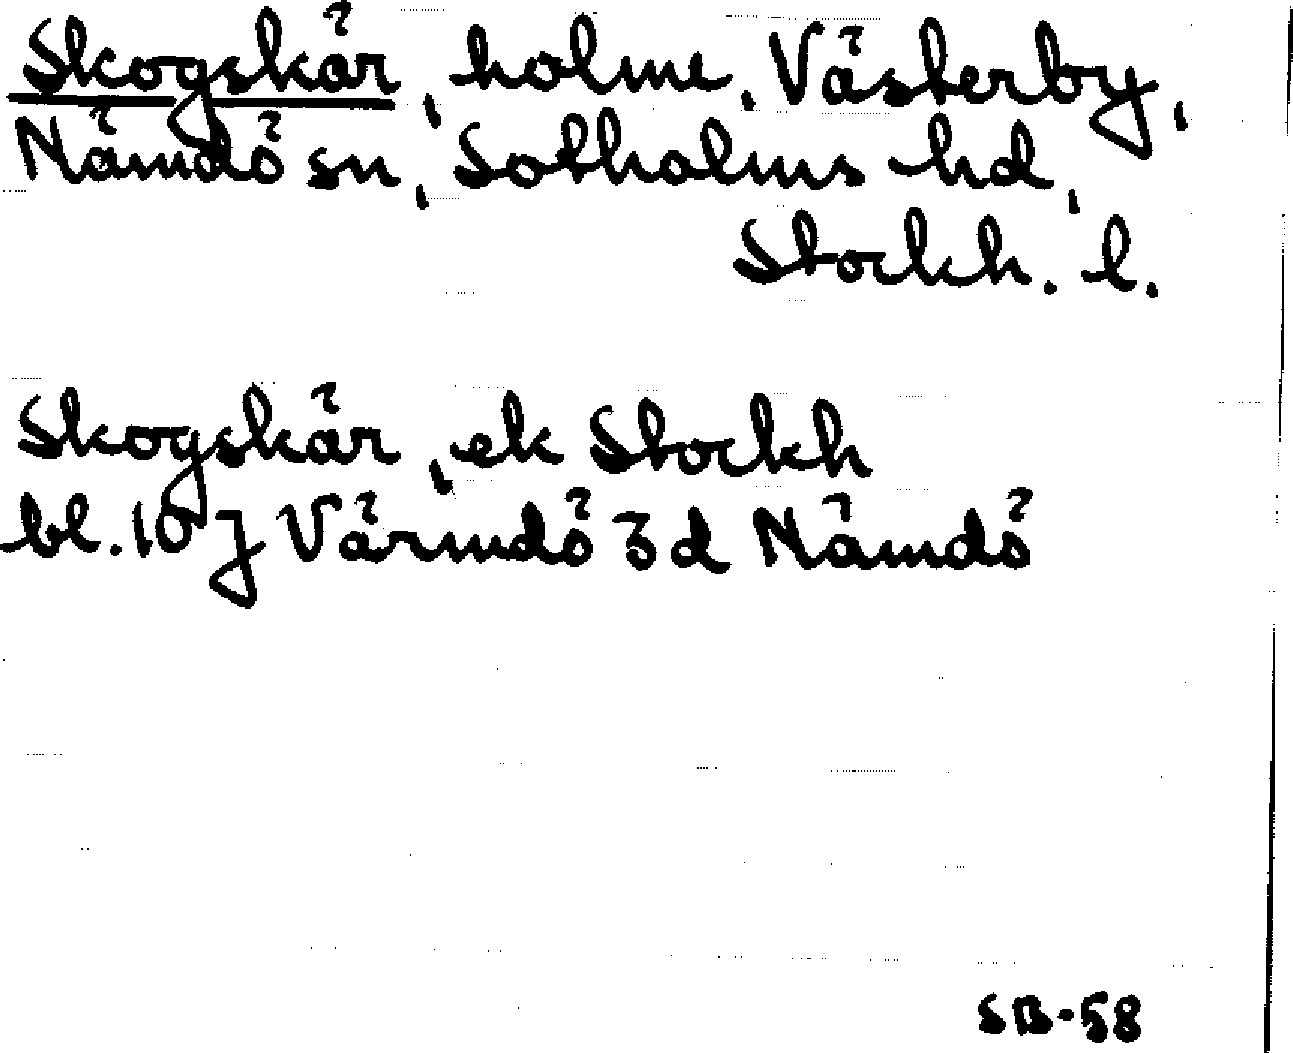 Skogskär, holme, Västerby,
Nämdö sn, Sotholms hd,
Stockh. l.
Skogskär, ek Stockh
bl. 10 J Värmdö 3 d Nämdö
SB-58